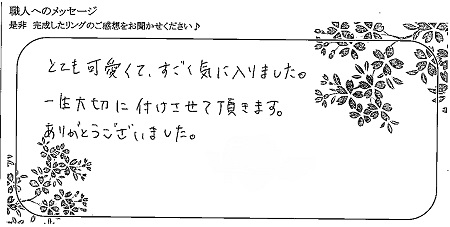 職人へのメッセージ
是非 完成したリングのご感想をお聞かせください♪
とても可愛くて、すごく気に入りました。
一生大切に付けさせて頂きます。
ありがとうございました。